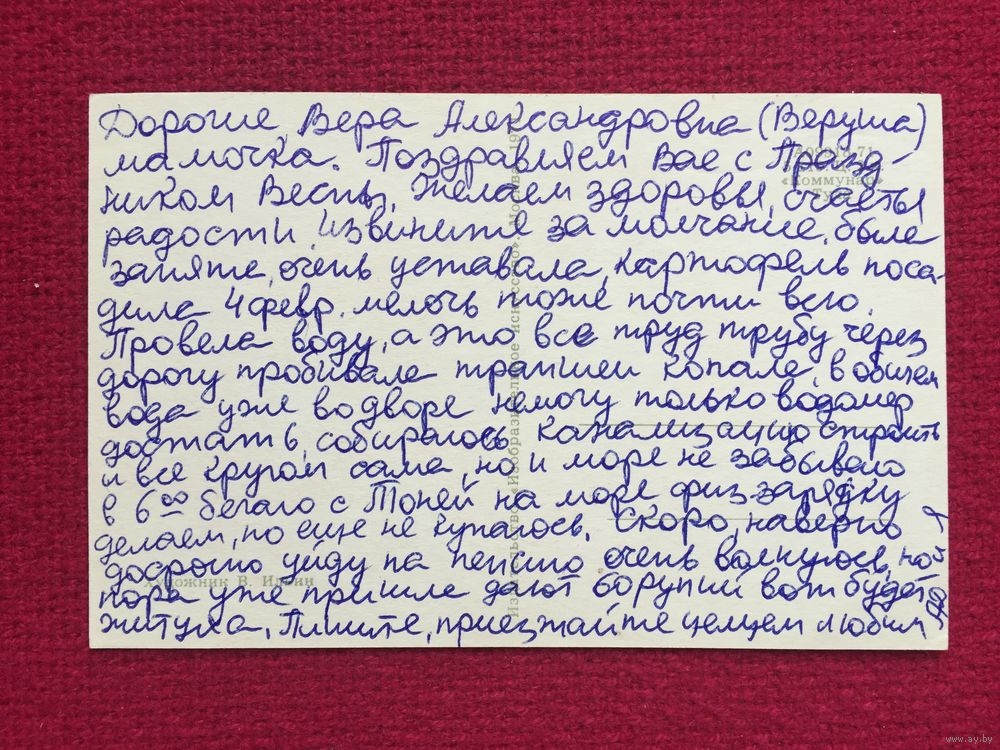 Дорогие, Вера Александровна (Веруша)
мамочка. Поздравляем Вас с Празд-
ником Весны, Желаем здоровья, счастья
радости, извините за молчание, была
занята, очень уставала, картофель поса-
дила 4 февр. мелочь тоже почти всю.
Провела воду, а это все труд трубу через
дорогу пробивала траншеи копала, в общем
вода уже во дворе немогу только водомер
достать, собираюсь канализацию строить
и все кругом сама, но и море не забываю
в 6 00 бегаю с Тоней на море физзарядку
делаем, но еще не купаюсь. Скоро, наверно
досрочно уйду на пенсию очень волнуюсь, но
пора уже пришла дают 60 рупий вот будет
житуха. Пишите, приезжайте целуем любим
Художник В. Ильин
«Коммунар»
Издательство «Изобразительное искусство». Москва. 197
www.ay.by